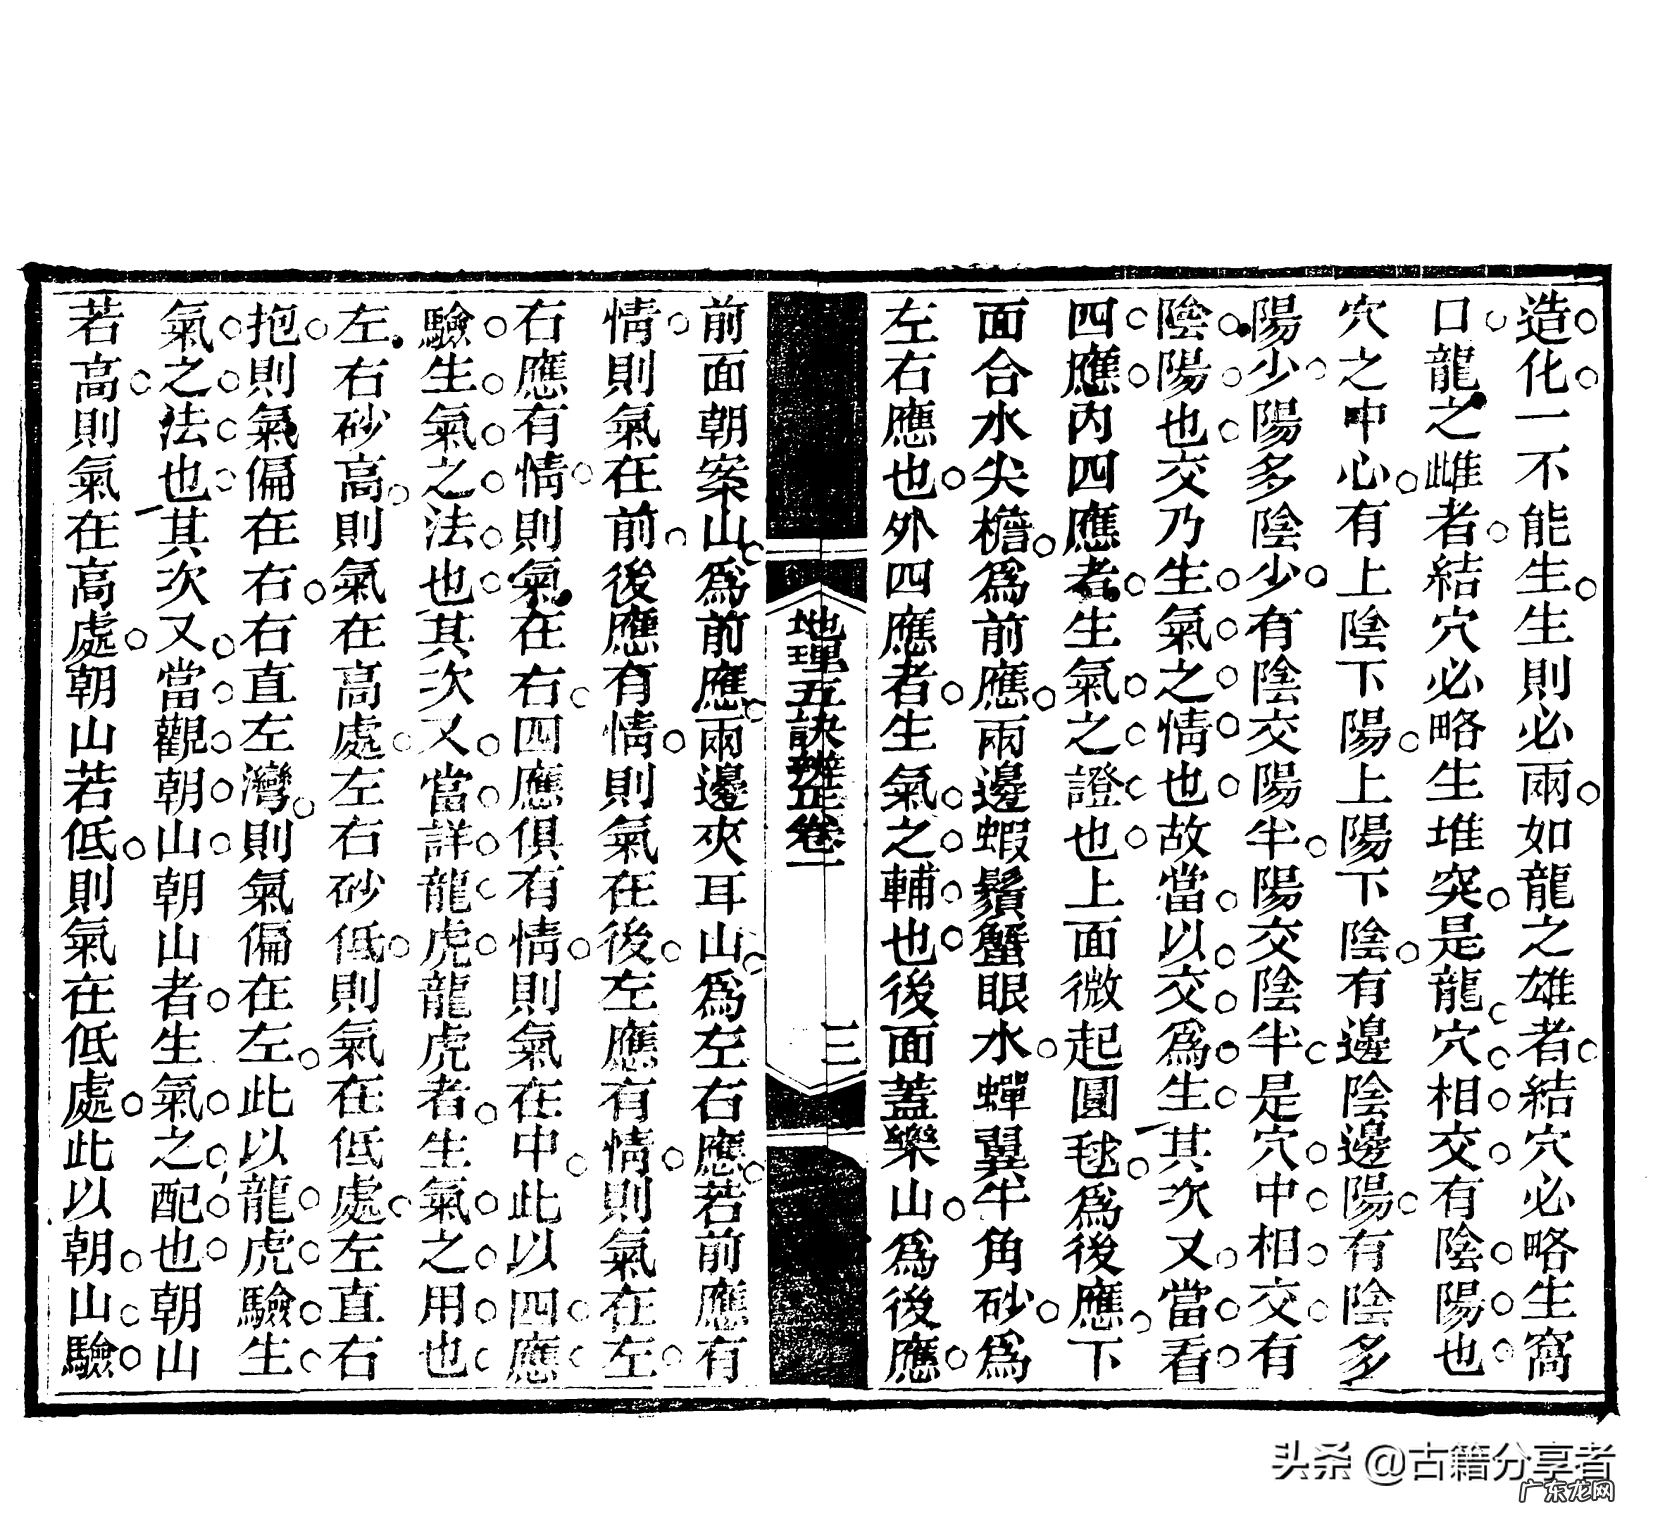 造化一不能生生則必兩如龍之雄者結穴必略生窩
口龍之雌者結穴必略生堆突是龍穴相交有陰陽也
穴之中心有上陰下陽上陽下陰有邊陰邊陽有陰多
陽少陽多陰少有陰交陽半陽交陰半是穴中相交有
陰陽也交乃生氣之情也故當以交爲生其次又當看
四應內四應者生氣之證也上面微起圓毬爲後應下
面合水尖檐爲前應兩邊蝦鬚蟹眼水蟬翼牛角砂爲
左右應也外四應者生氣之輔也後面蓋樂山爲後應
地理五訣辨正卷一
三
前面朝案山爲前應兩邊夾耳山爲左右應若前應有
情則氣在前後應有情則氣在後左應有情則氣在左
右應有情則氣在右四應俱有情則氣在中此以四應
驗生氣之法也其次又當詳龍虎龍虎者生氣之用也
左右砂高則氣在高處左右砂低則氣在低處左直右
抱則氣偏在右右直左灣則氣偏在左此以龍虎驗生
氣之法也其次又當觀朝山朝山者生氣之配也朝山
若高則氣在高處朝山若低則氣在低處此以朝山驗
头条 @古籍分享者
广东龙网